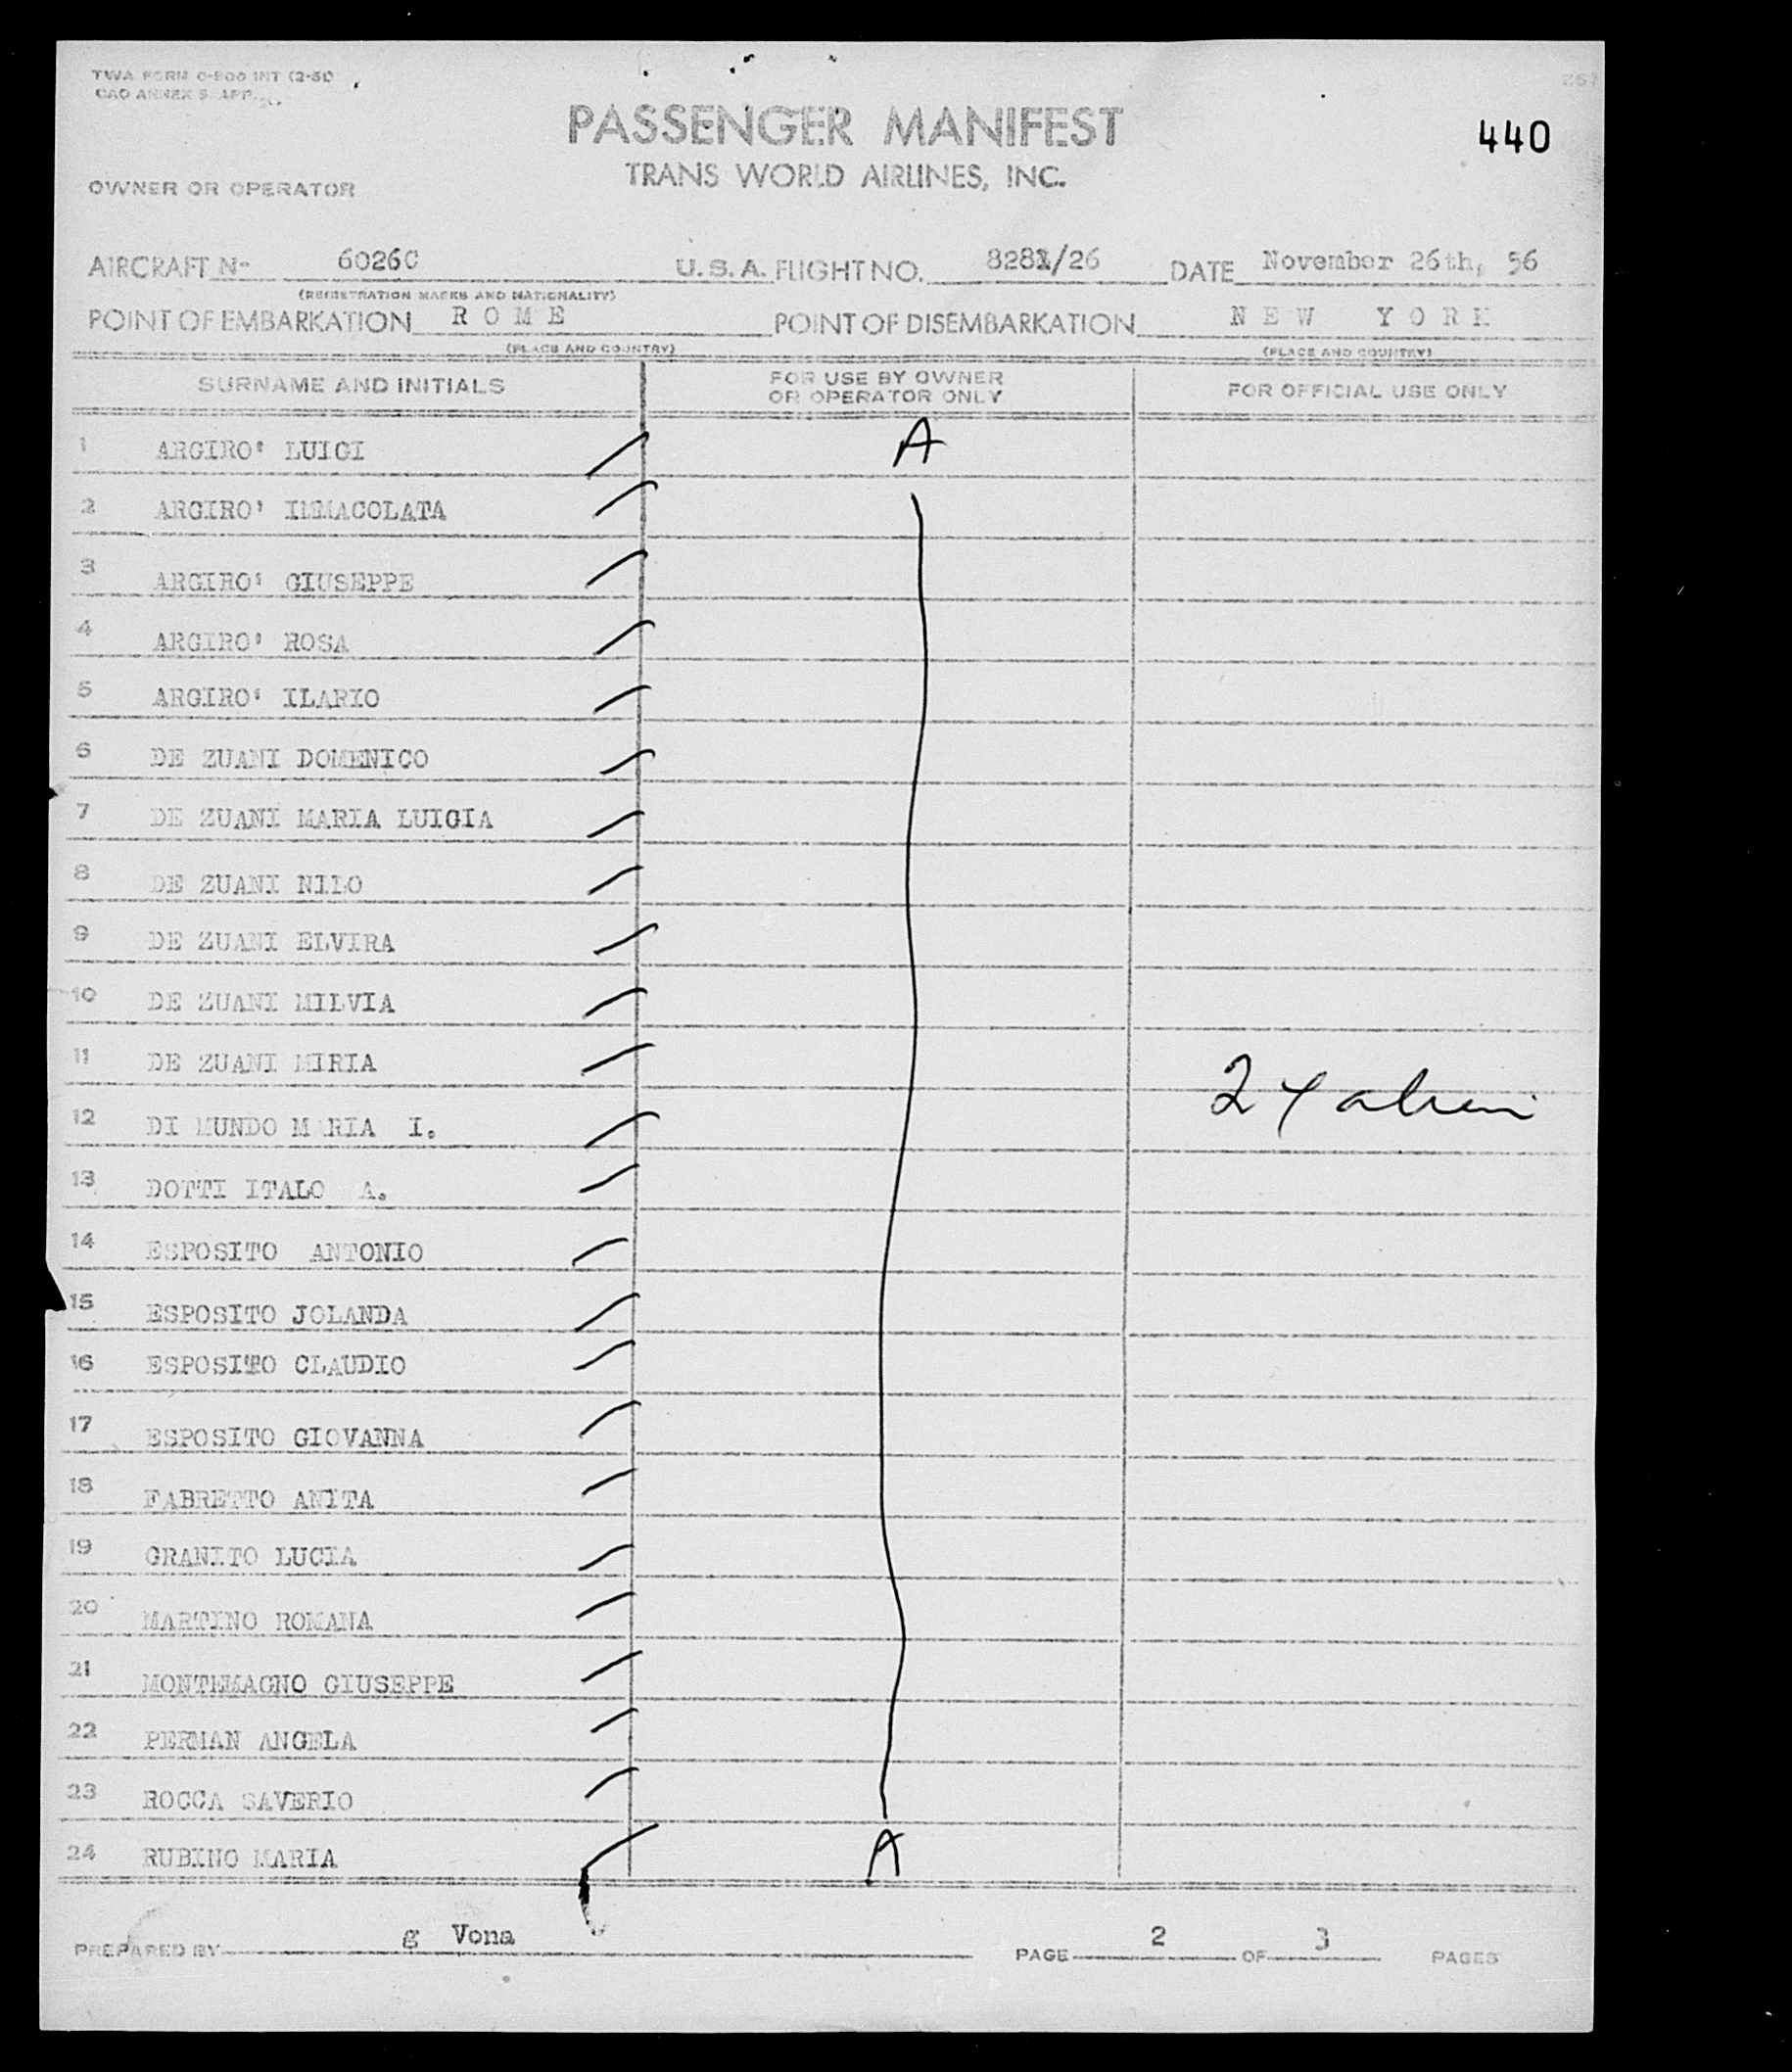 TWA FORM O-800 INT (2-51)
CAO ANNEX 9 APP.
PASSENGER MANIFEST
440
TRANS WORLD AIRLINES, INC.
OWNER OR OPERATOR
AIRCRAFT N- 6026C U.S.A. FLIGHT NO. 8281/26 DATE November 26th, 56
(REGISTRATION MARKS AND NATIONALITY)
POINT OF EMBARKATION R O M E POINT OF DISEMBARKATION N E W Y O R K
(PLACE AND COUNTRY) (PLACE AND COUNTRY)
SURNAME AND INITIALS FOR USE BY OWNER OR OPERATOR ONLY FOR OFFICIAL USE ONLY
1 ARGIRO' LUIGI A
2 ARGIRO' IMMACOLATA
3 ARGIRO' GIUSEPPE
4 ARGIRO' ROSA
5 ARGIRO' ILARIO
6 DE ZUANI DOMENICO
7 DE ZUANI MARIA LUIGIA
8 DE ZUANI NILO
9 DE ZUANI ELVIRA
10 DE ZUANI MILVIA
11 DE ZUANI MIRIA
24
12 DI MUNDO MARIA I.
13 DOTTI ITALO A.
14 ESPOSITO ANTONIO
15 ESPOSITO JOLANDA
16 ESPOSITO CLAUDIO
17 ESPOSITO GIOVANNA
18 FABRETTO ANITA
19 GRANITO LUCIA
20 MARTINO ROMANA
21 MONTEMAGNO GIUSEPPE
22 PERMAN ANGELA
23 ROCCA SAVERIO
24 RUBINO MARIA A
PREPARED BY g Vona PAGE 2 OF 3 PAGES